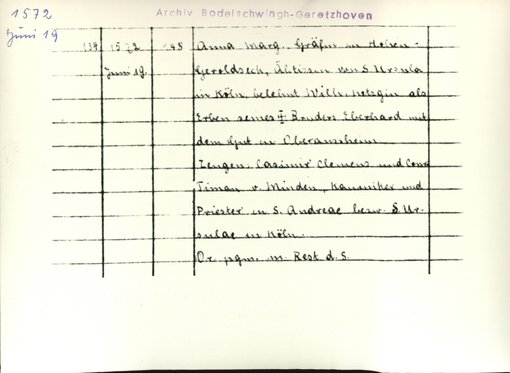 1572
Juni 19
Archiv Bodelschwingh-Geretzhoven
139 1572 145 Anna Marg., Gräfin in
Juni 19. Geroldseck, Äbtissin von S. Ursula
in Köln, belehnt Wilh. als
Erben seines † Bruders Eberhard mit
dem Gut in Oberaussem
Zeugen: Casimir Clemens und
Timan v. Minden, Kanoniker und
Priester in S. Andreae bezw. S. Ur-
sulae in Köln.
Or. pgm. m. Rest d. S.